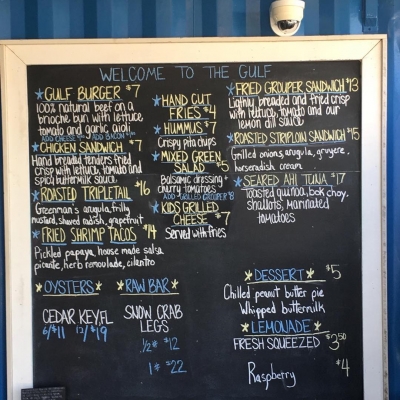 WELCOME TO THE GULF
GULF BURGER $7
100% natural beef on a
brioche bun with lettuce
tomato and garlic aioli
ADD CHEESE ADD BACON
CHICKEN SANDWICH $7
Hand breaded tenders fried
crisp with lettuce, tomato and
spicy buttermilk sauce
ROASTED TRIPLETAIL $16
Greenman's arugula, frilly
mustard, shaved radish, grapefruit
FRIED SHRIMP TACOS $14
Pickled papaya, house made salsa
picante, herb remoulade, cilantro
HAND CUT
FRIES $4
HUMMUS $7
Crispy pita chips
MIXED GREEN
SALAD $5
Balsamic dressing
cherry tomatoes
ADD GRILLED GROUPER $8
KIDS GRILLED
CHEESE $7
Served with fries
FRIED GROUPER SANDWICH $13
Lightly breaded and fried crisp
with lettuce, tomato and our
lemon dill sauce
ROASTED STRIPLOIN SANDWICH $15
Grilled onions, arugula, gruyere,
horseradish cream
SEARED AHI TUNA $17
Toasted quinoa, bok choy,
shallots, marinated
tomatoes
OYSTERS
CEDAR KEY, FL
6/$11 12/$19
RAW BAR
SNOW CRAB
LEGS
1/2# $12
1# $22
DESSERT $5
Chilled peanut butter pie
Whipped buttermilk
LEMONADE
FRESH SQUEEZED $3.50
Raspberry $4